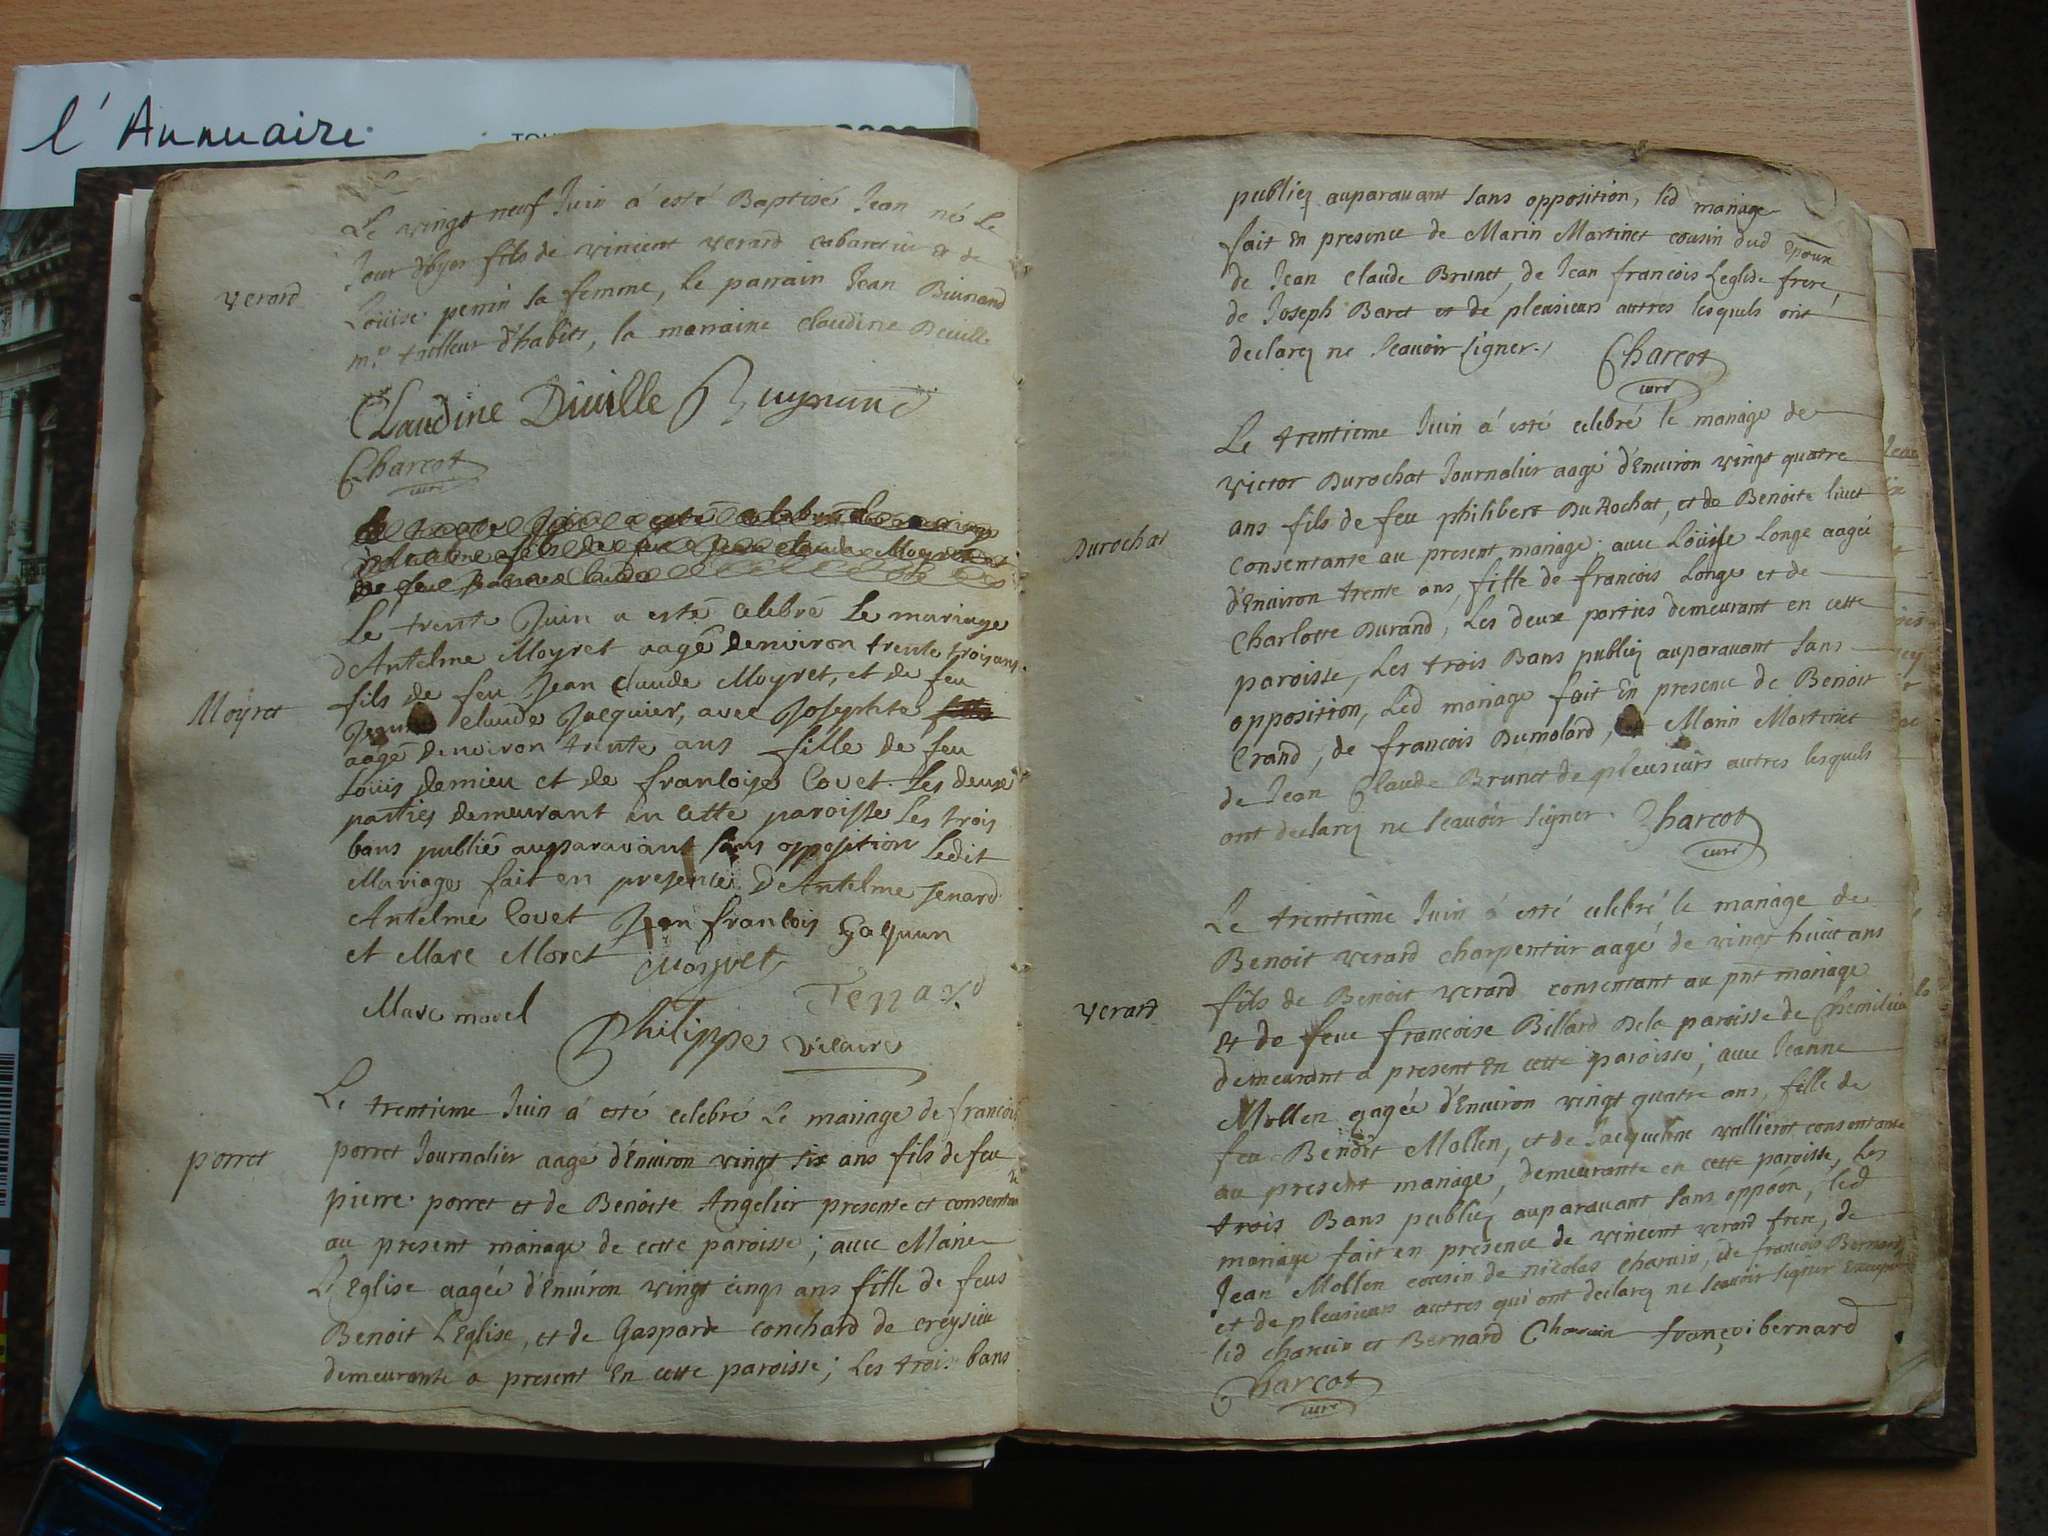 l'Annuaire
Le vingt neuf Juin à esté Baptisé Jean né Le
Jour d'hyer fils de vincent verard cabaretier et de
verard
Loüise perrin sa femme, Le parrain Jean
me tailleur d'habits, la marraine claudine Deville
Claudine Diville
Charcot
curé
Le trente Juin a esté celebré Le mariage
d'Antelme Moyret aagé denviron trente trois ans
fils de feu Jean claude Moyret, et de feu
Moÿret
Jeanne claude Jacquier, avec Josephte
aagé denviron trente ans fille de feu
Loüis demieu et de francoise Covet. Les deux
parties demeurant en cette paroisse Les trois
bans publié auparavant sans opposition Ledit
Mariage fait en presence D'Antelme Jenard
Antelme Covet Jean francois Gaquun
et Marc Moret
Moyret
Marc morel
Jenard
Philippe vicaire
Le trentieme Juin á esté celebré Le mariage de francois
porret Journalier aagé d'Environ vingt six ans fils de feu
porret
pierre porret et de Benoite Angelier presente et consentante
au present mariage de cette paroisse; avec Marie
L'Eglise aagée d'Environ vingt cinq ans fille de feus
Benoit L'Eglise, et de Gasparde conchard de creysieu
demeurante a present En cette paroisse; Les trois bans
publiez auparavant sans opposition, led mariage
fait En presence de Marin Martinet cousin dud Epoux
de Jean claude Brunet, de Jean francois Leglise frere,
de Joseph Baret et de pleusieurs autres lesquels ont
declarez ne scavoir signer./. Charcot
curé
Le trentieme Juin á esté celebré le mariage de
victor Durochat Journalier aagé d'Environ vingt quatre
ans fils de feu philibert DuRochat, et de Benoite livet
Durochat
consentante au present mariage; avec Loüise Longe aagée
d'Environ trente ans, fille de francois Longe et de
Charlotte Durand, Les deux parties demeurant en cette
paroisse, Les trois Bans publiez auparavant sans
opposition, Led mariage fait En presence de Benoit
Crand, de francois Dumolard, Marin Martinet
de Jean Claude Brunet de pleusieurs autres lesquels
ont declarez ne scavoir signer. Charcot
curé
Le trentiême Juin á esté celebré le mariage de
Benoit verard charpentier aagé de vingt huict ans
fils de Benoit verard consentant au pnt mariage
verard
et de feue francoise Billard Dela paroisse de
demeurant a present En cette paroisse; avec Jeanne
Mollen aagée d'Environ vingt quatre ans, fille de
feu Benoit Mollen, et de Jacqueline vallierot consentante
au present mariage, demeurante en cette paroisse, Les
trois Bans publiez auparavant sans oppôon, led
mariage fait en presence de vincent verard frere, de
Jean Mollen cousin de nicolas charvin, de francois Bernard
et de pleusieurs autres qui ont declarez ne scavoir signer Excepté
led charvin et Bernard Charvin françoi bernard
Charcot
curé